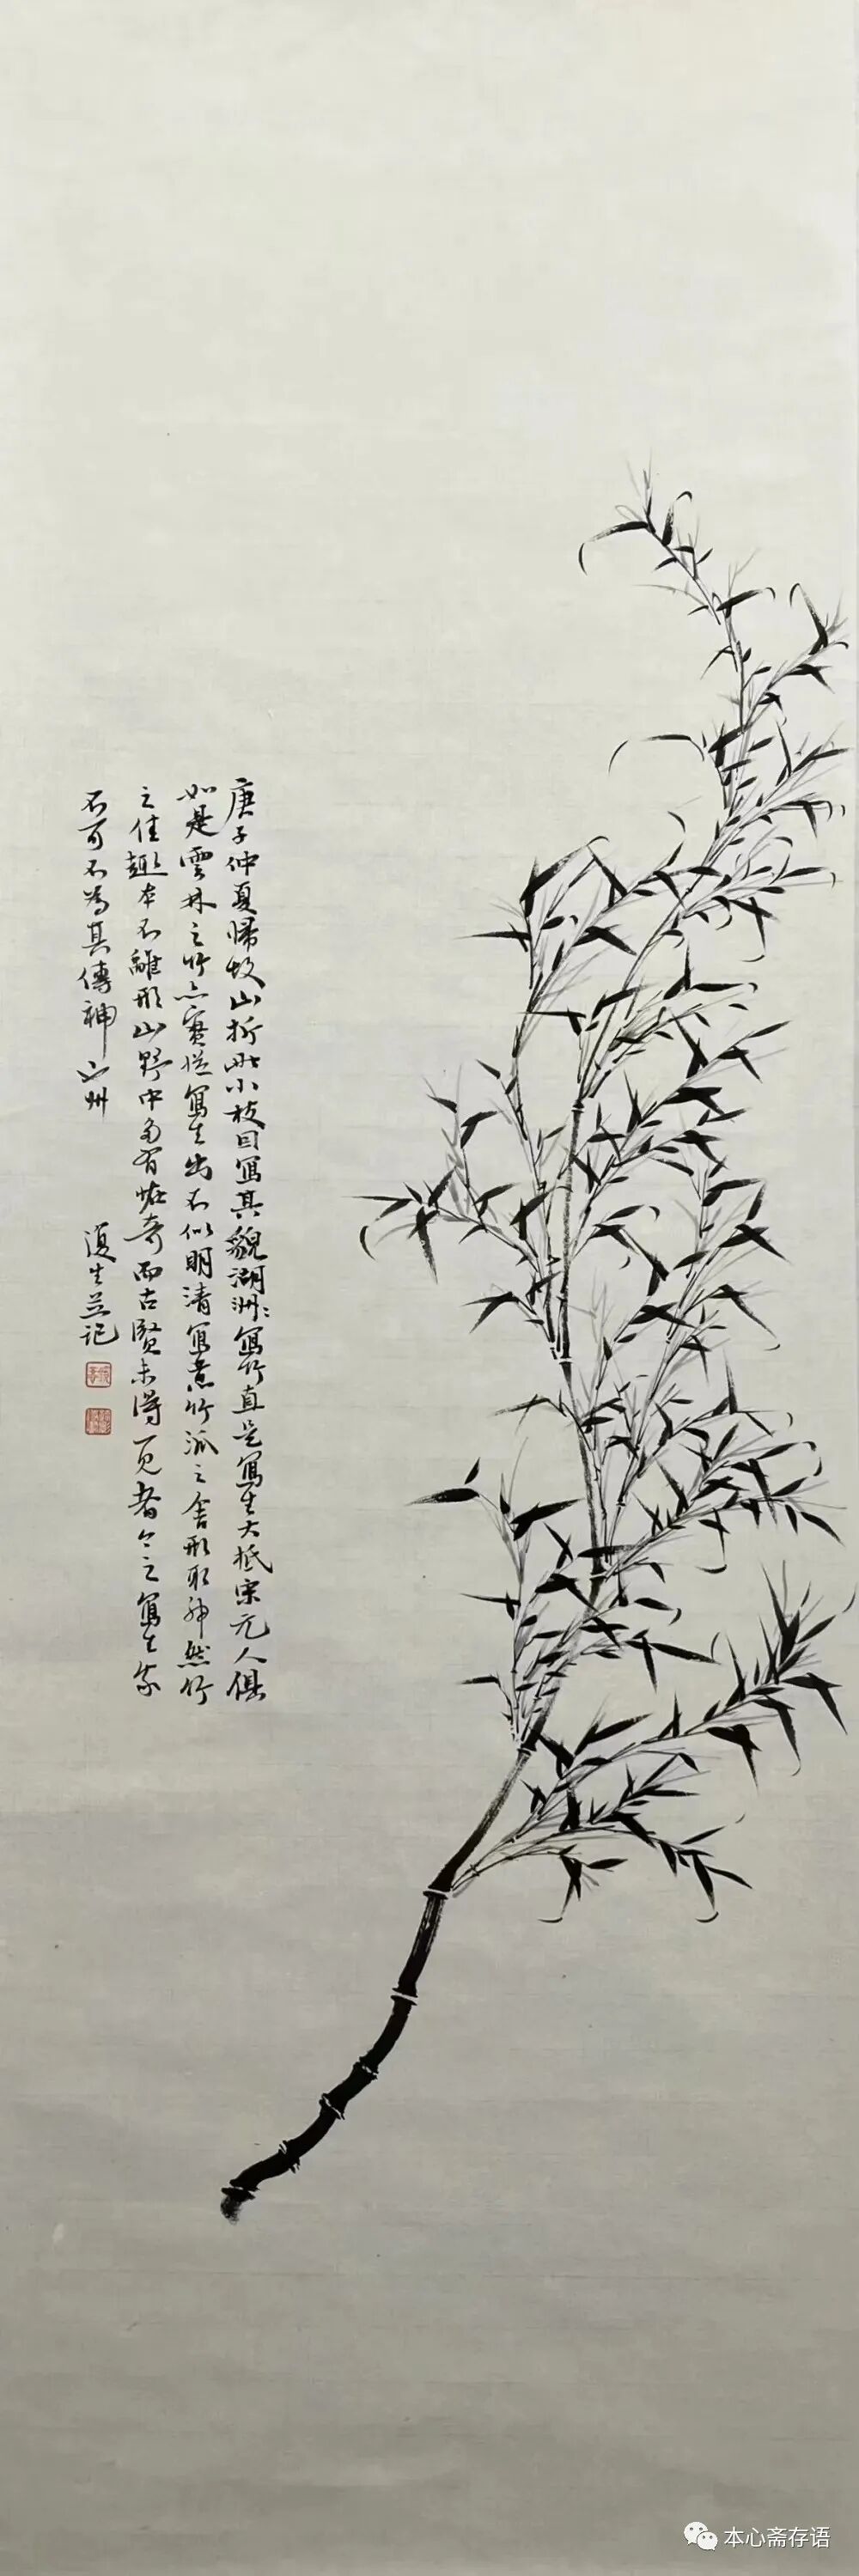 庚子仲夏歸故山折此小枝因寫其貌湖洲〻寫竹直是寫生大抵宋元人俱
如是雲林之竹亦實從寫生出不似明清寫意竹派之舍形取神然竹
之佳趣本不離形山野中多有恠奇而古賢未得一見者今之寫生家
不可不為其傳神 州
復生並記
本心斋存语